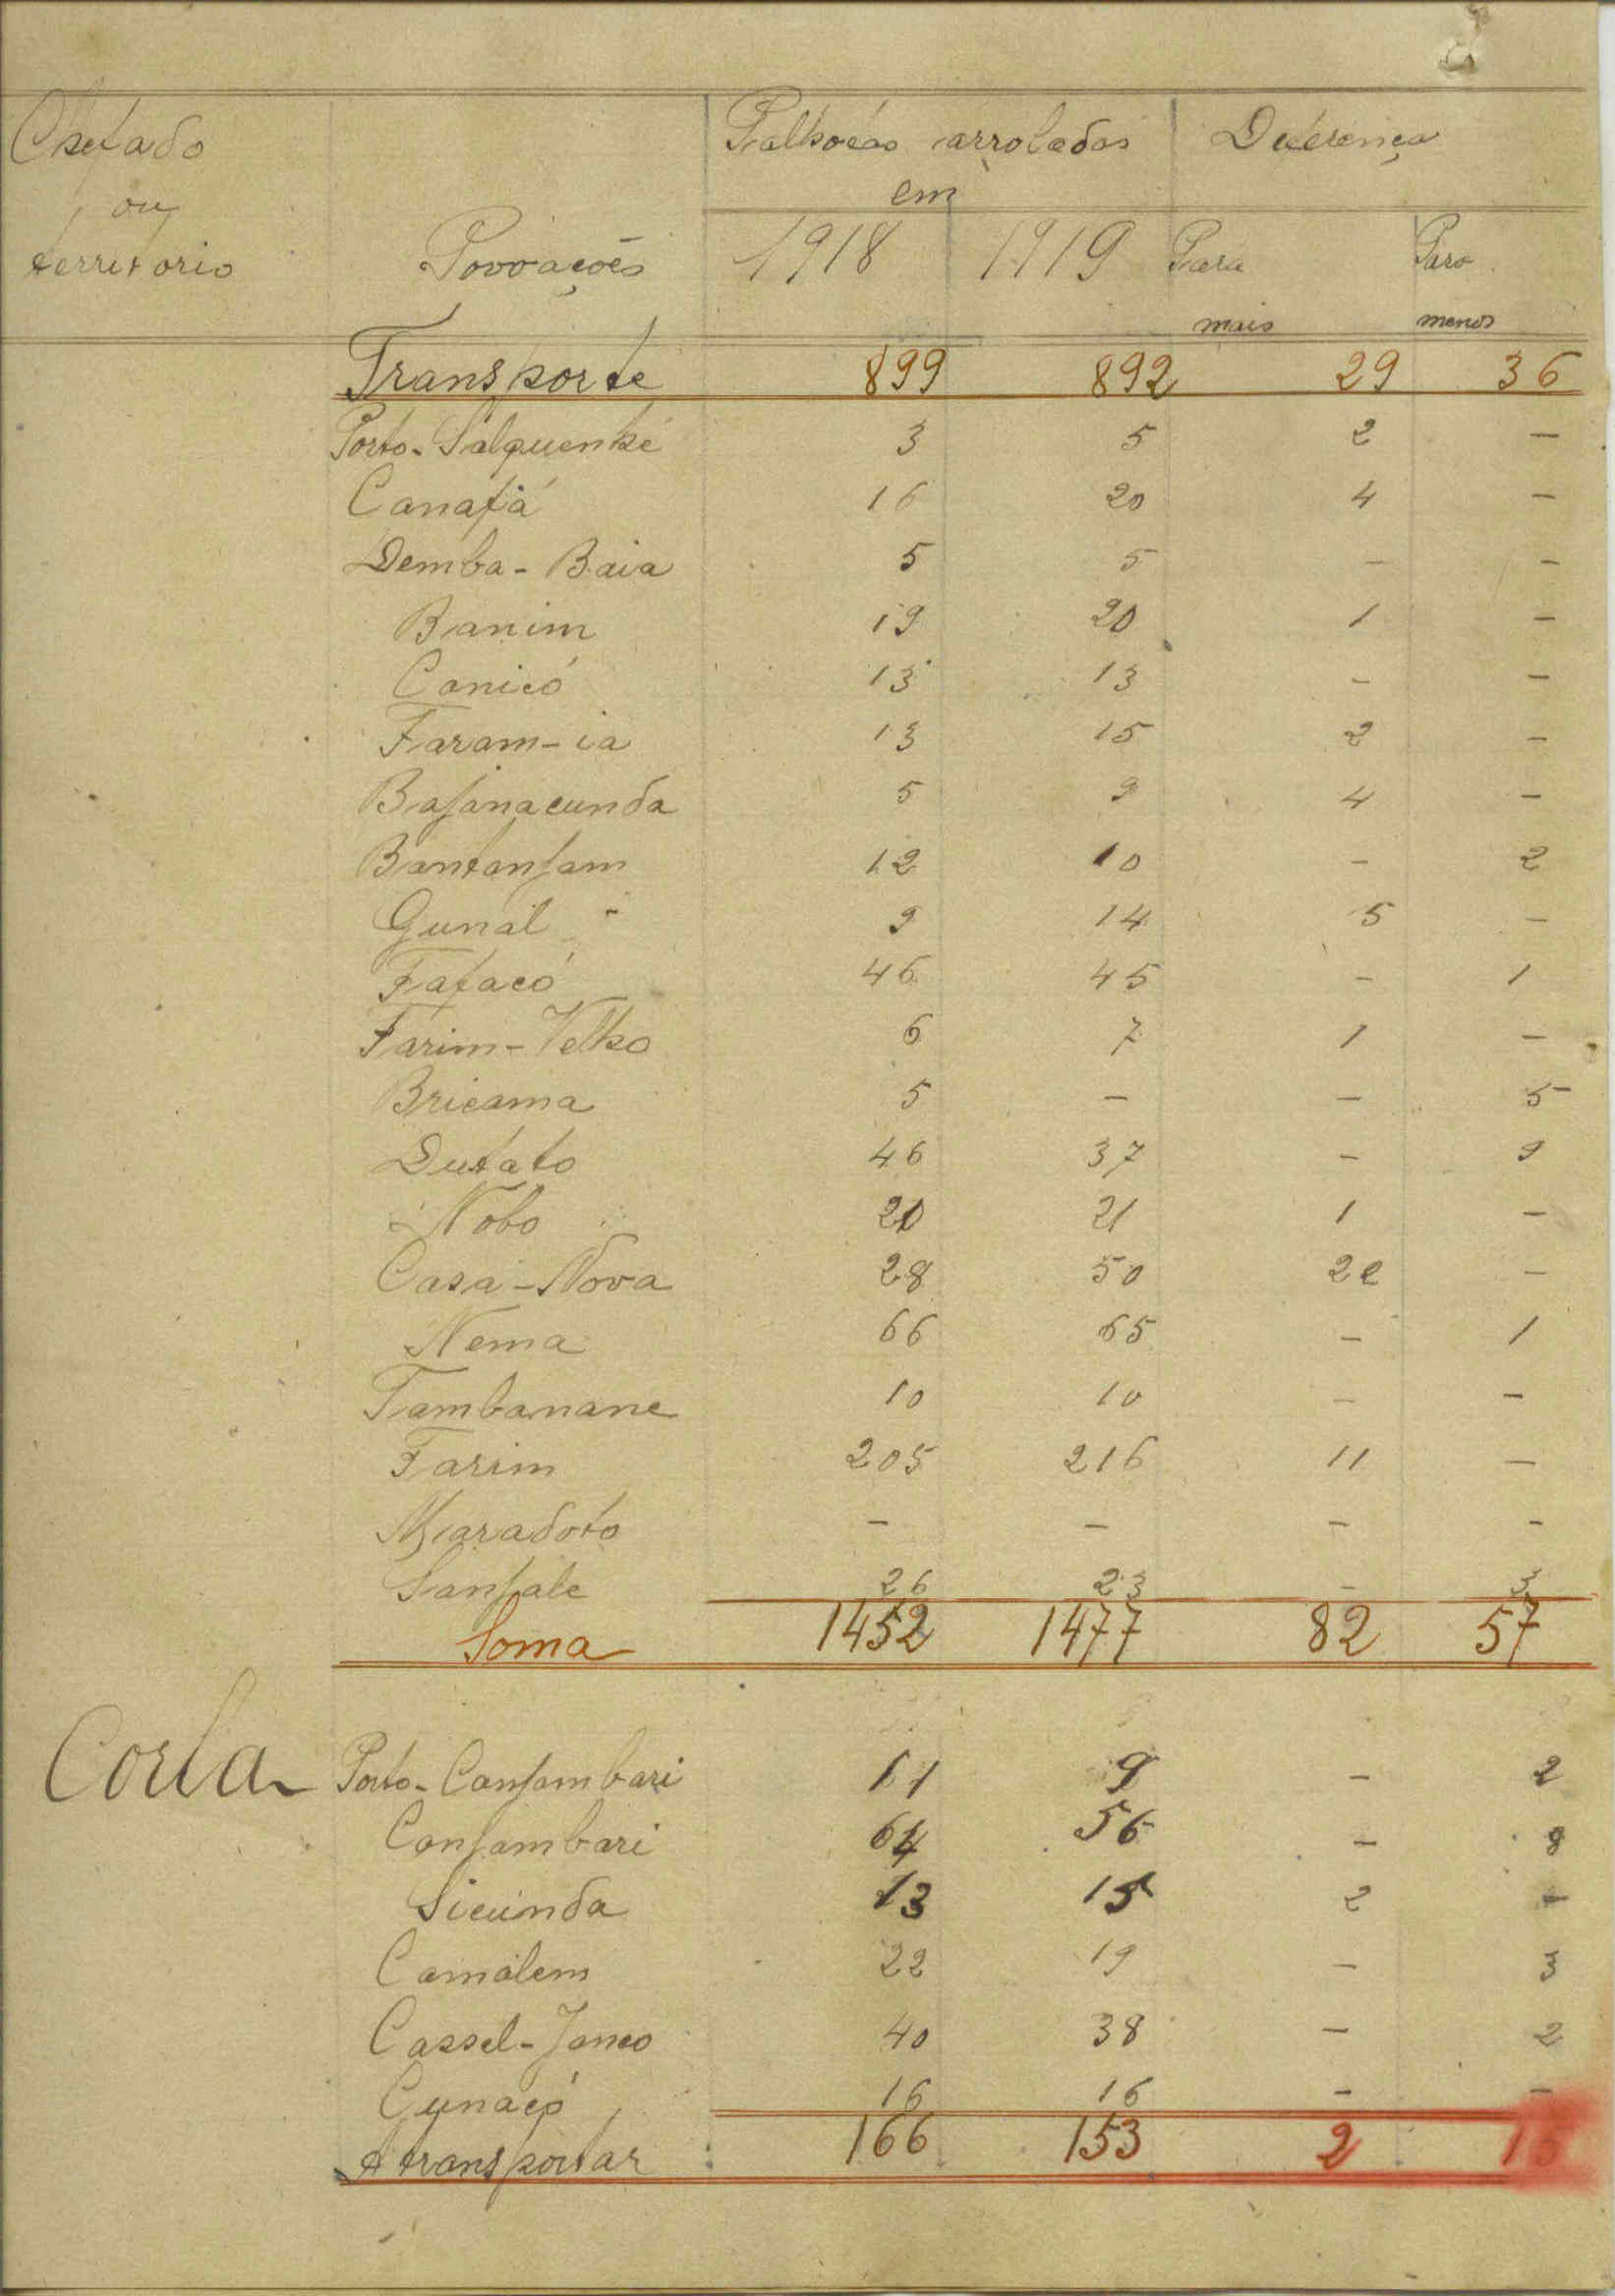 Chefado
ou
territorio
Povoações
Palhoças arroladas
em
1918 1919
Diferença
Para mais
Para menos
Transporte 899 892 29 36
Porto-Salquenhé 3 5 2 —
Canafá 16 20 4 —
Demba-Baia 5 5 — —
Banim 19 20 1 —
Canicó 13 13 — —
Faram-ia 13 15 2 —
Bajanacunda 5 9 4 —
Bantanjam 12 10 — 2
Gunal 9 14 5 —
Fafacó 46 45 — 1
Farim-Velho 6 7 1 —
Bricama 5 — — 5
Dutato 46 37 — 9
Nobo 20 21 1 —
Casa-Nova 28 50 22 —
Nema 66 65 — 1
Tambanane 10 10 — —
Farim 205 216 11 —
Maradoto — — — —
Sanjale 26 23 — 3
Soma 1452 1477 82 57
Corla Porto-Canjambari 11 9 — 2
Canjambari 64 56 — 8
Sicunda 13 15 2 —
Camalem 22 19 — 3
Cassel-Janco 40 38 — 2
Cunacó 16 16 — —
A transportar 166 153 2 15